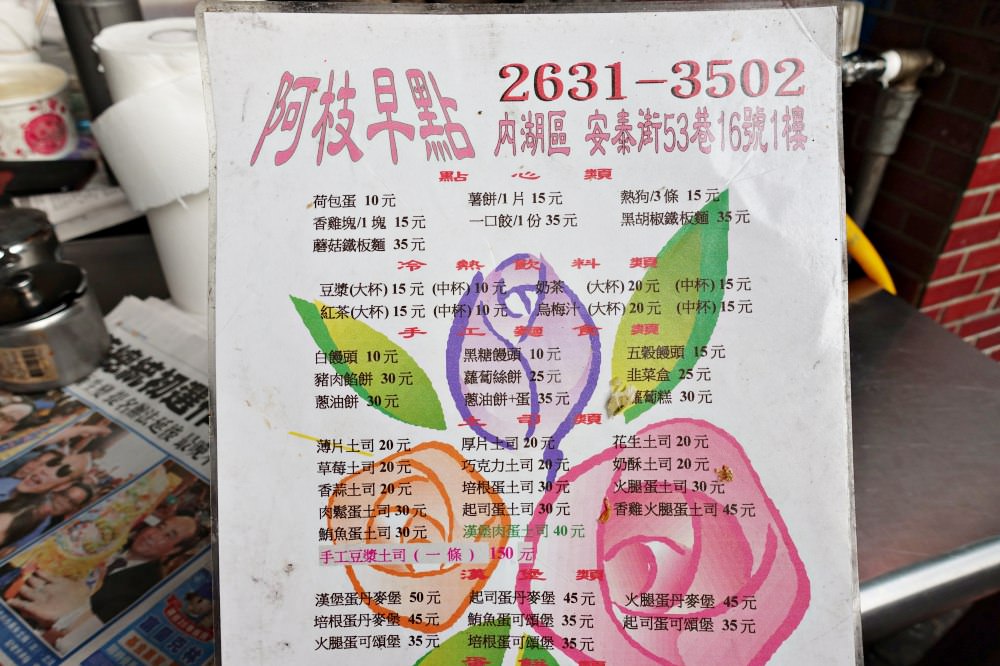 阿枝早點
2631-3502
內湖區 安泰街53巷16號1樓
點心類
荷包蛋 10元 薯餅/1片 15元 熱狗/3條 15元
香雞塊/1塊 15元 一口餃/1份 35元 黑胡椒鐵板麵 35元
蘑菇鐵板麵 35元
冷熱飲料類
豆漿(大杯)15元 (中杯)10元 奶茶 (大杯)20元 (中杯)15元
紅茶(大杯)15元 (中杯)10元 烏梅汁(大杯)20元 (中杯)15元
手工麵食類
白饅頭 10元 黑糖饅頭 10元 五穀饅頭 15元
豬肉餡餅 30元 蘿蔔絲餅 25元 韭菜盒 25元
蔥油餅 30元 蔥油餅+蛋 35元 蘿蔔糕 30元
土司類
薄片土司 20元 厚片土司 20元 花生土司 20元
草莓土司 20元 巧克力土司 20元 奶酥土司 20元
香蒜土司 20元 培根蛋土司 30元 火腿蛋土司 30元
肉鬆蛋土司 30元 起司蛋土司 30元 香雞火腿蛋土司 45元
鮪魚蛋土司 30元 漢堡肉蛋土司 40元
手工豆漿土司(一條) 150元
漢堡類
漢堡蛋丹麥堡 50元 起司蛋丹麥堡 45元 火腿蛋丹麥堡 45元
培根蛋丹麥堡 45元 鮪魚蛋可頌堡 35元 起司蛋可頌堡 35元
火腿蛋可頌堡 35元 培根蛋可頌堡 35元
蛋餅類